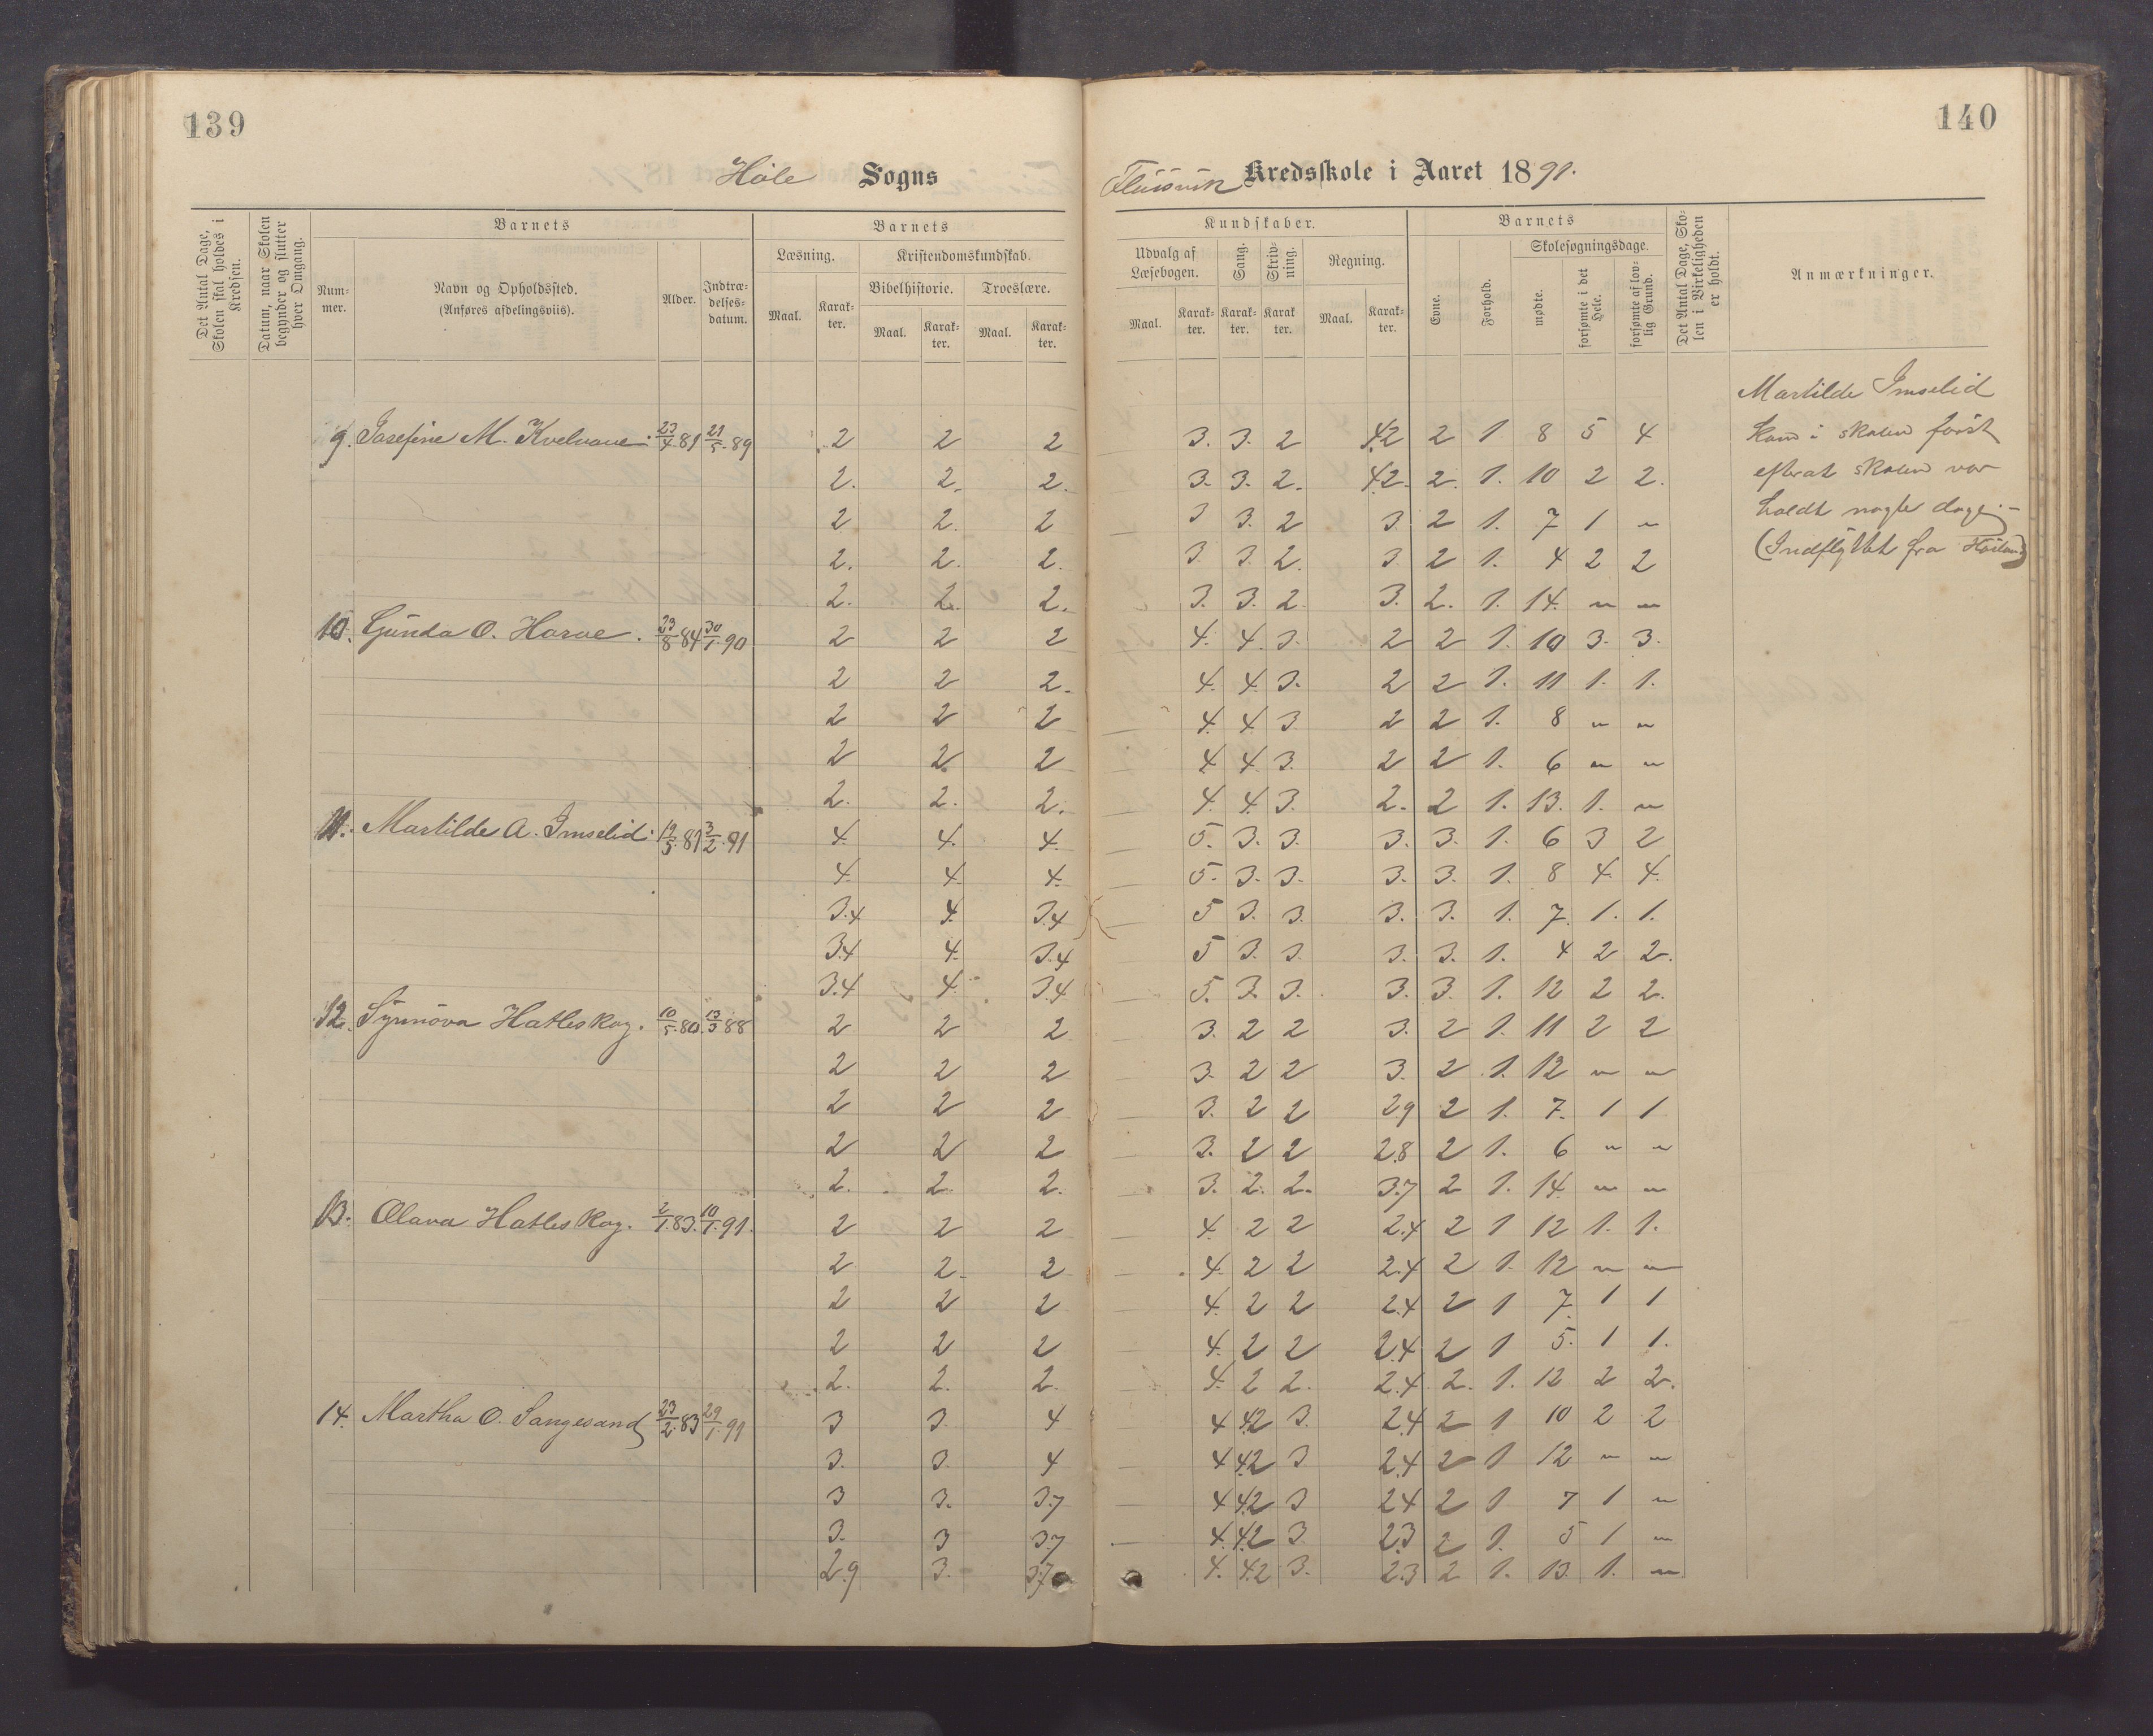 139
140
Høle Sogns
Kredsskole i Aaret 1891.
Det Antal Dage, Skolen skal holdes i Kredsen.
Datum, naar Skolen begynder og slutter hver Omgang.
Barnets
Num-
mer.
Navn og Opholdssted.
(Anføres afdelingsviis).
Alder.
Indtræ-
delses-
datum.
Barnets
Læsning.
Maal.
Karak-
ter.
Kristendomskundskab.
Bibelhistorie.
Maal.
Karak-
ter.
Troeslære.
Maal.
Karak-
ter.
Kundskaber.
Udvalg af
Læsebogen.
Maal.
Karak-
ter.
Sang.
Karak-
ter.
Skriv-
ning.
Karak
ter.
Regning.
Maal.
Karak-
ter.
Barnets
Evne.
Forhold.
Skolesøgningsdage.
mødte.
forsømte i det
Hele.
forsømte af lov-
lig Grund.
Det Antal Dage, Sko-
len i Virkeligheden
er holdt.
Anmærkninger.
9. Josefine M. Kvelvane. 23/4.81 21/5.89 2 2 2 3. 3. 2 4.2 2 1 8 5 4
2. 2. 2. 3. 3. 2. 4.2. 2. 1. 10 2 2.
2 2. 2 3 3. 2 3. 2 1. 7 1 "
2. 2. 2. 3 3. 2. 3. 2 1. 4 2 2
2. 2. 2. 3. 3. 2. 3. 2. 1. 14. " "
10. Gunda O. Horve. 23/8 84 30/1.90 2 2 2 4. 4. 3. 2 2 1. 10 3. 3.
2 2 2. 4. 4. 3. 2 2 1. 11 1. 1.
2 2 2 4. 4 3 2 2 1. 8 " "
2 2 2 4 4 3. 2 2 1. 6 " "
2. 2. 2. 4. 4. 3. 2. 2 1. 13. 1. "
11. Martilde A. Imselid. 19/5.81 3/2.91 4. 4. 4. 5. 3. 3. 3. 3. 1. 6 3 2
4. 4. 4. 5. 3. 3. 3. 3. 1. 8 4. 4.
3.4 4. 3.4 5 3. 3. 3. 3. 1. 7. 1. 1.
3.4 4. 3.4 5 3. 3. 3. 3. 1. 4 2 2.
3.4 4. 3.4 5. 3. 3. 3. 3. 1. 12 2 2.
12. Synnøva Hatleskog. 10/5.80. 13/3 88 2 2 2 3. 2 2 3. 2 1. 11 2 2
2 2 2 3. 2 2 3. 2 1. 12 " "
2 2 2 3. 2 2 2.9 2 1. 7. 1 1
2 2 2 3. 2 2 2.8 2 1. 6 " "
2. 2. 2. 3. 2. 2. 3.7 2 1. 14. " "
13. Olava Hatleskog. 2/1.83. 10/1.91. 2 2 2 4. 2 2 2.4 2 1 12 1. 1.
2 2. 2 4. 2 2 2.4 2 1. 12 " "
2 2 2 4. 2 2 2.4 2 1 7. 1 1
2 2 2 4. 2 2 2.4 2 1 5. 1 1.
2. 2. 2. 4. 2 2. 2.4. 2. 1. 12 2 2.
14. Martha O. Sangesand 23/2.83 29/1.91 3 3. 4 4 4.2 3. 2.4 2 1 10 2 2
3. 3. 4 4 4.2 3 2.4 2 1 12 " "
3 3. 3.7 4 4.2 3 2.4 2 1 7 1 "
3. 3 3.7 4. 4.2 3. 2.3 2 1. 5 1 "
2.9 3. 3.7 4. 4.2 3. 2.3 2 1. 13. 1. "
Martilde Imselid
kom i skolen først
efterat skolen var
holdt nogle dage.-
(Indflyttet fra